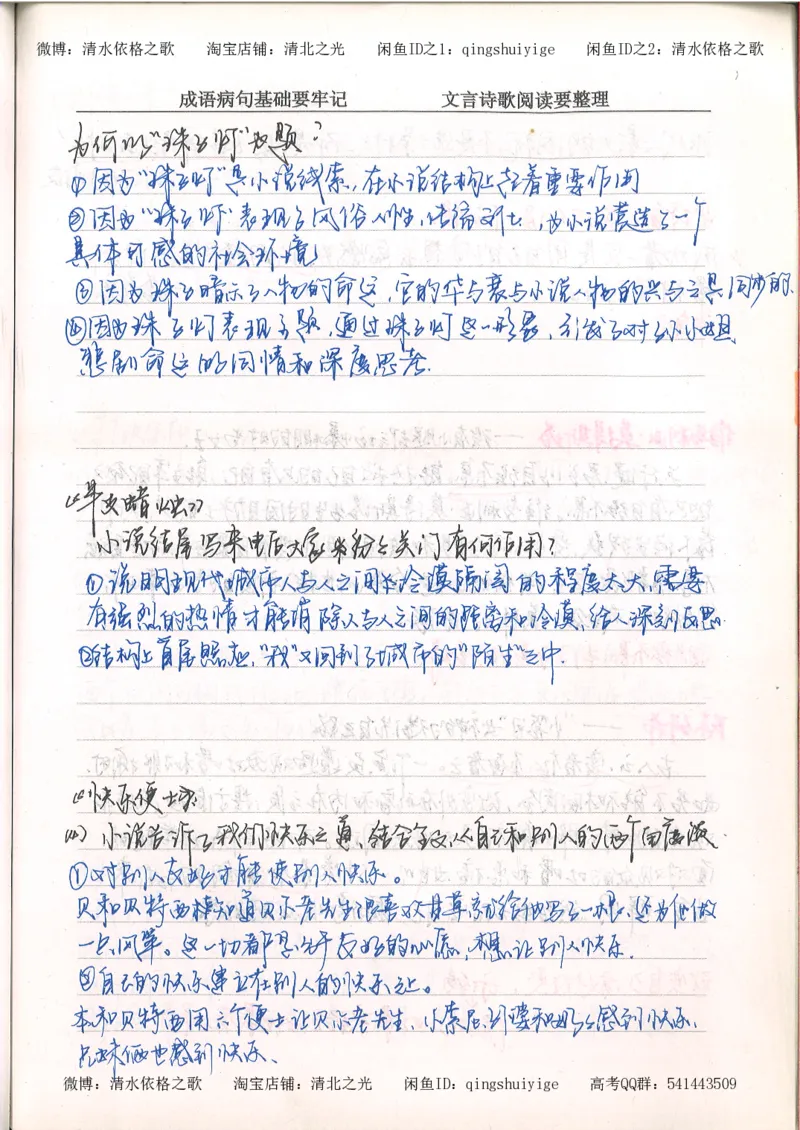 微博：清水依格之歌 淘宝店铺：清北之光 闲鱼ID之1：qingshuiyige 闲鱼ID之2：清水依格之歌
成语病句基础要牢记 文言诗歌阅读要整理
为何以“珠子灯”为题？
①因为“珠子灯”是小说线索，在小说结构上起着重要作用
②因为“珠子灯”表现了风俗人性，传神，为小说营造了一个
具体可感的社会环境
③因为珠子暗示了人物的命运，它的华与衰与小说人物的兴与亡是同步的
④因为珠子灯表现主题，通过珠子灯这一形象，引发了对孙小姐
悲剧命运的同情和深度思考.
小说结尾写来电后大家纷纷关门有何作用？
①说明现代城市人与人之间冷漠隔阂的程度太大，需要
有强烈的热情才能消除人与人之间的隔离和冷漠，给人深刻反思.
②结构上首尾照应，“我”又回到了城市的“陌生”之中.
《快乐便士》
(4) 小说告诉了我们快乐之道，结合全文从自己和别人的两个角度谈.
①对别人友好才能使别人快乐。
贝和贝特西知道贝尔老先生很喜欢甘草就给他写了一根，还为他做
一只风筝。这一切都是出于友好的心愿，想让别人快乐.
②自己的快乐建立在别人的快乐之上。
本和贝特西用六个便士让贝尔老先生，小索尼，到婆和妈妈感到快乐，
兄妹俩也感到快乐、
微博：清水依格之歌 淘宝店铺：清北之光 闲鱼ID：qingshuiyige 高考QQ群：541443509